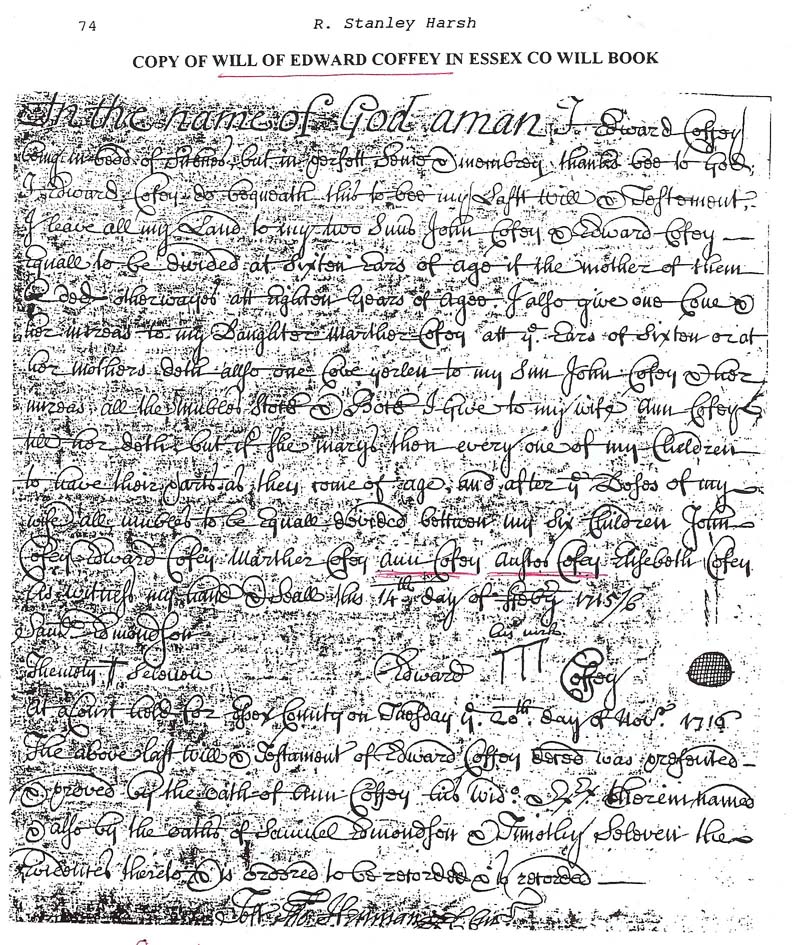 74
R. Stanley Harsh
COPY OF WILL OF EDWARD COFFEY IN ESSEX CO WILL BOOK
In the name of God aman I. Edward Coffey
being in bedd of Sicknes, but in perfect Sence & membrey thanks bee to God,
I Edward Cofey do bequeath this to bee my Lastt will & Testement,
I leave all my Land to my two Suns John Cofey & Edward Cofey
Equall to be divided at Sixten Ears of age if the mother of them
be ded otherwayes att eighten years of agee. I also give one Cove &
her increas to my Daughter Marther Cofey att ye Ears of Sixten or at
her mothers deth also one Cove yerlen to my Sun John Cofey & her
increas all the mubles Stock & I Give to my wife Ann Cofey
till her deth but if She marys then every one of my Children
to have their parts as they come of age and after ye of my
wife all mubles to be Equall devided bettwen my Six Children John
Cofey Edward Cofey Marther Cofey ann Cofey Austes Cofey Elisebeth Cofey
As witness my hand & Seall this 14th day of feby 1715/6
Saml Edmondson his mark
Themoty T Seleven Edward Coffey
At a Court held for Essex County on Tuesday ye 20th day of Novr 1716
The above last will & Testament of Edward Coffey deced was presented
& proved by the oath of Ann Coffey his wido & Exx therein named
& also by the oaths of Samuel Edmondson & Timothy Seleven the
witnesses thereto & is ordered to be recorded & is recorded
Test